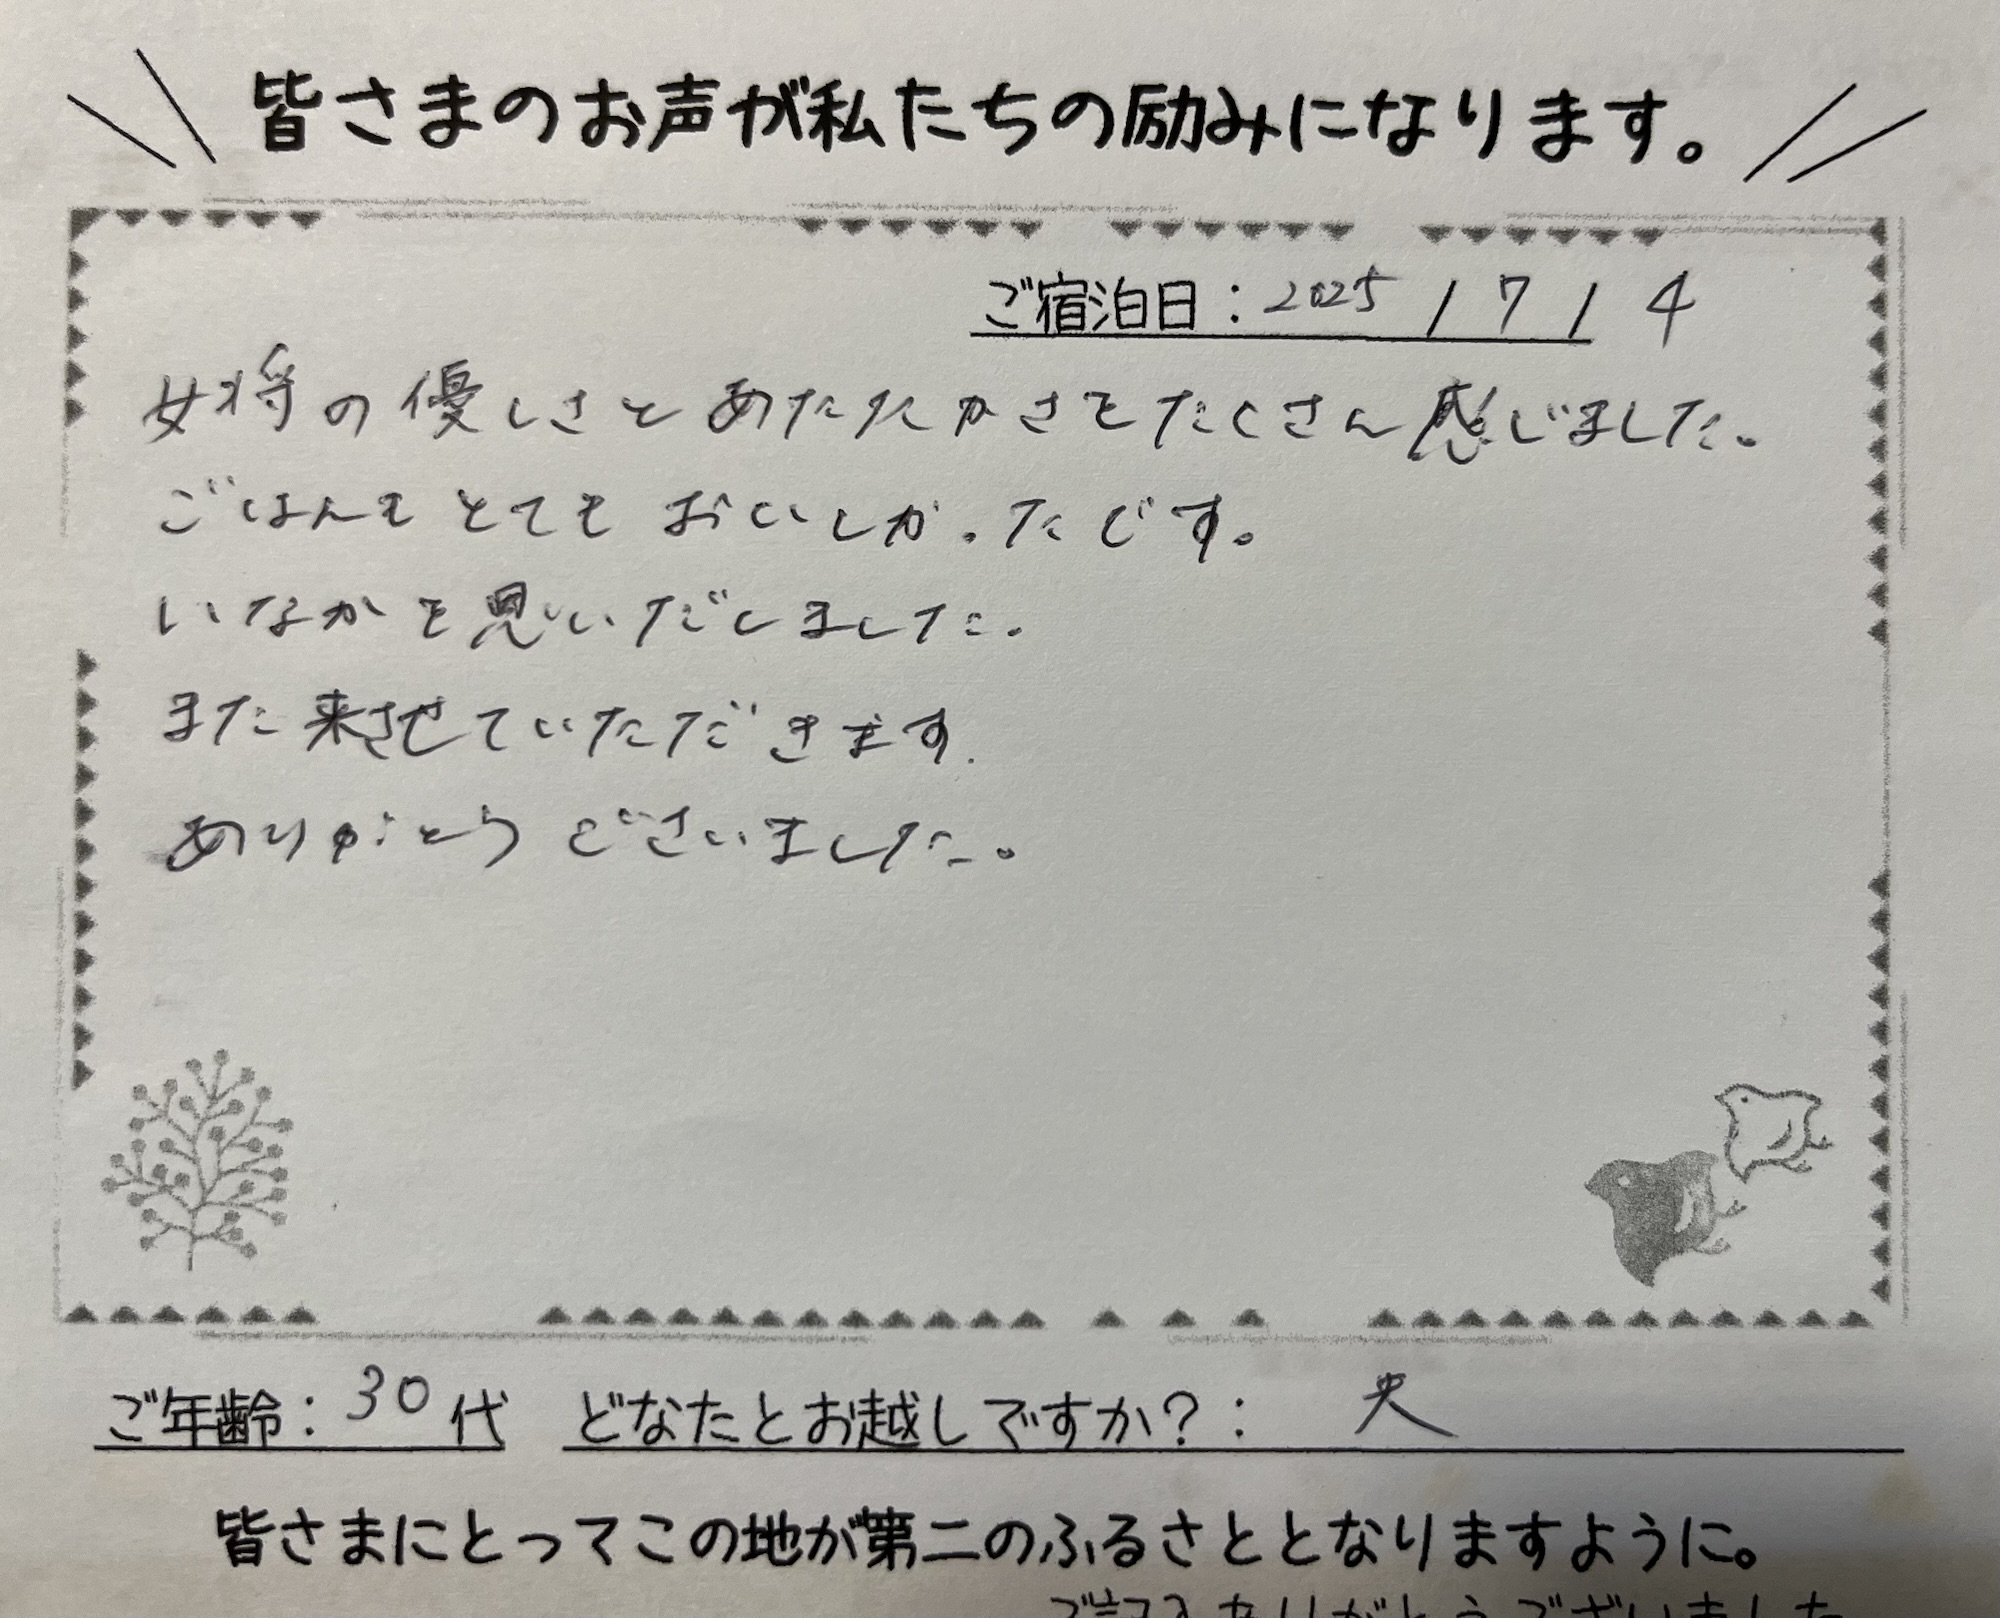 皆さまのお声が私たちの励みになります。
ご宿泊日：2025/7/4
女将の優しさとあたたかさをたくさん感じました。
ごはんもとてもおいしかったです。
いなかを思いだしました。
また来させていただきます.
ありがとうございました。
ご年齢：30代 どなたとお越しですか？：夫
皆さまにとってこの地が第二のふるさととなりますように。
ご記入ありがとうございました